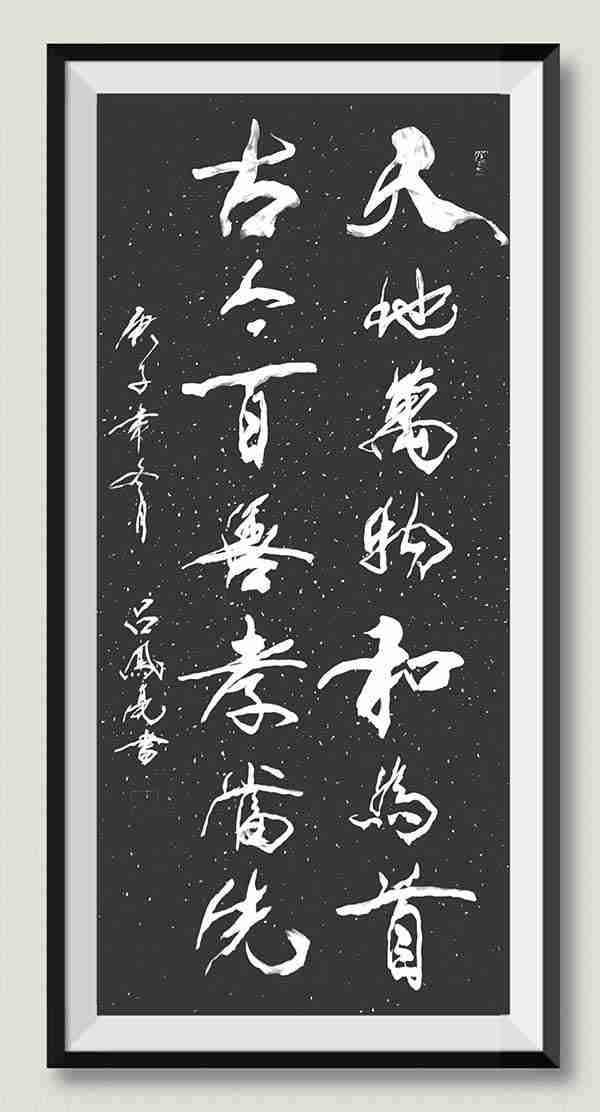 天地萬物和為首
古今百善孝當先
庚子年冬月 呂鳳亮書